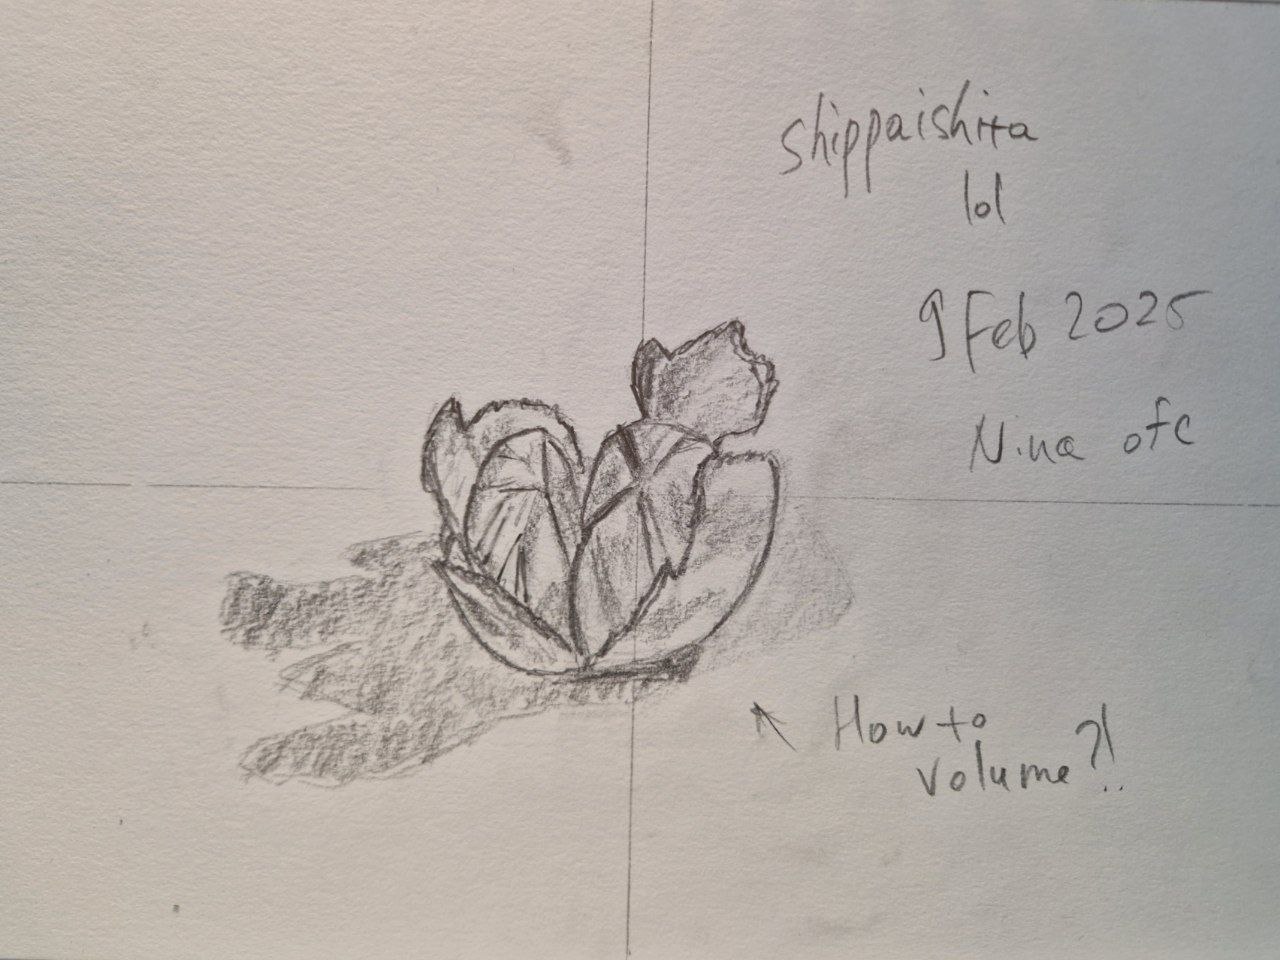 shippaishita
lol
9 Feb 2025
Nina ofc
How to
volume?!